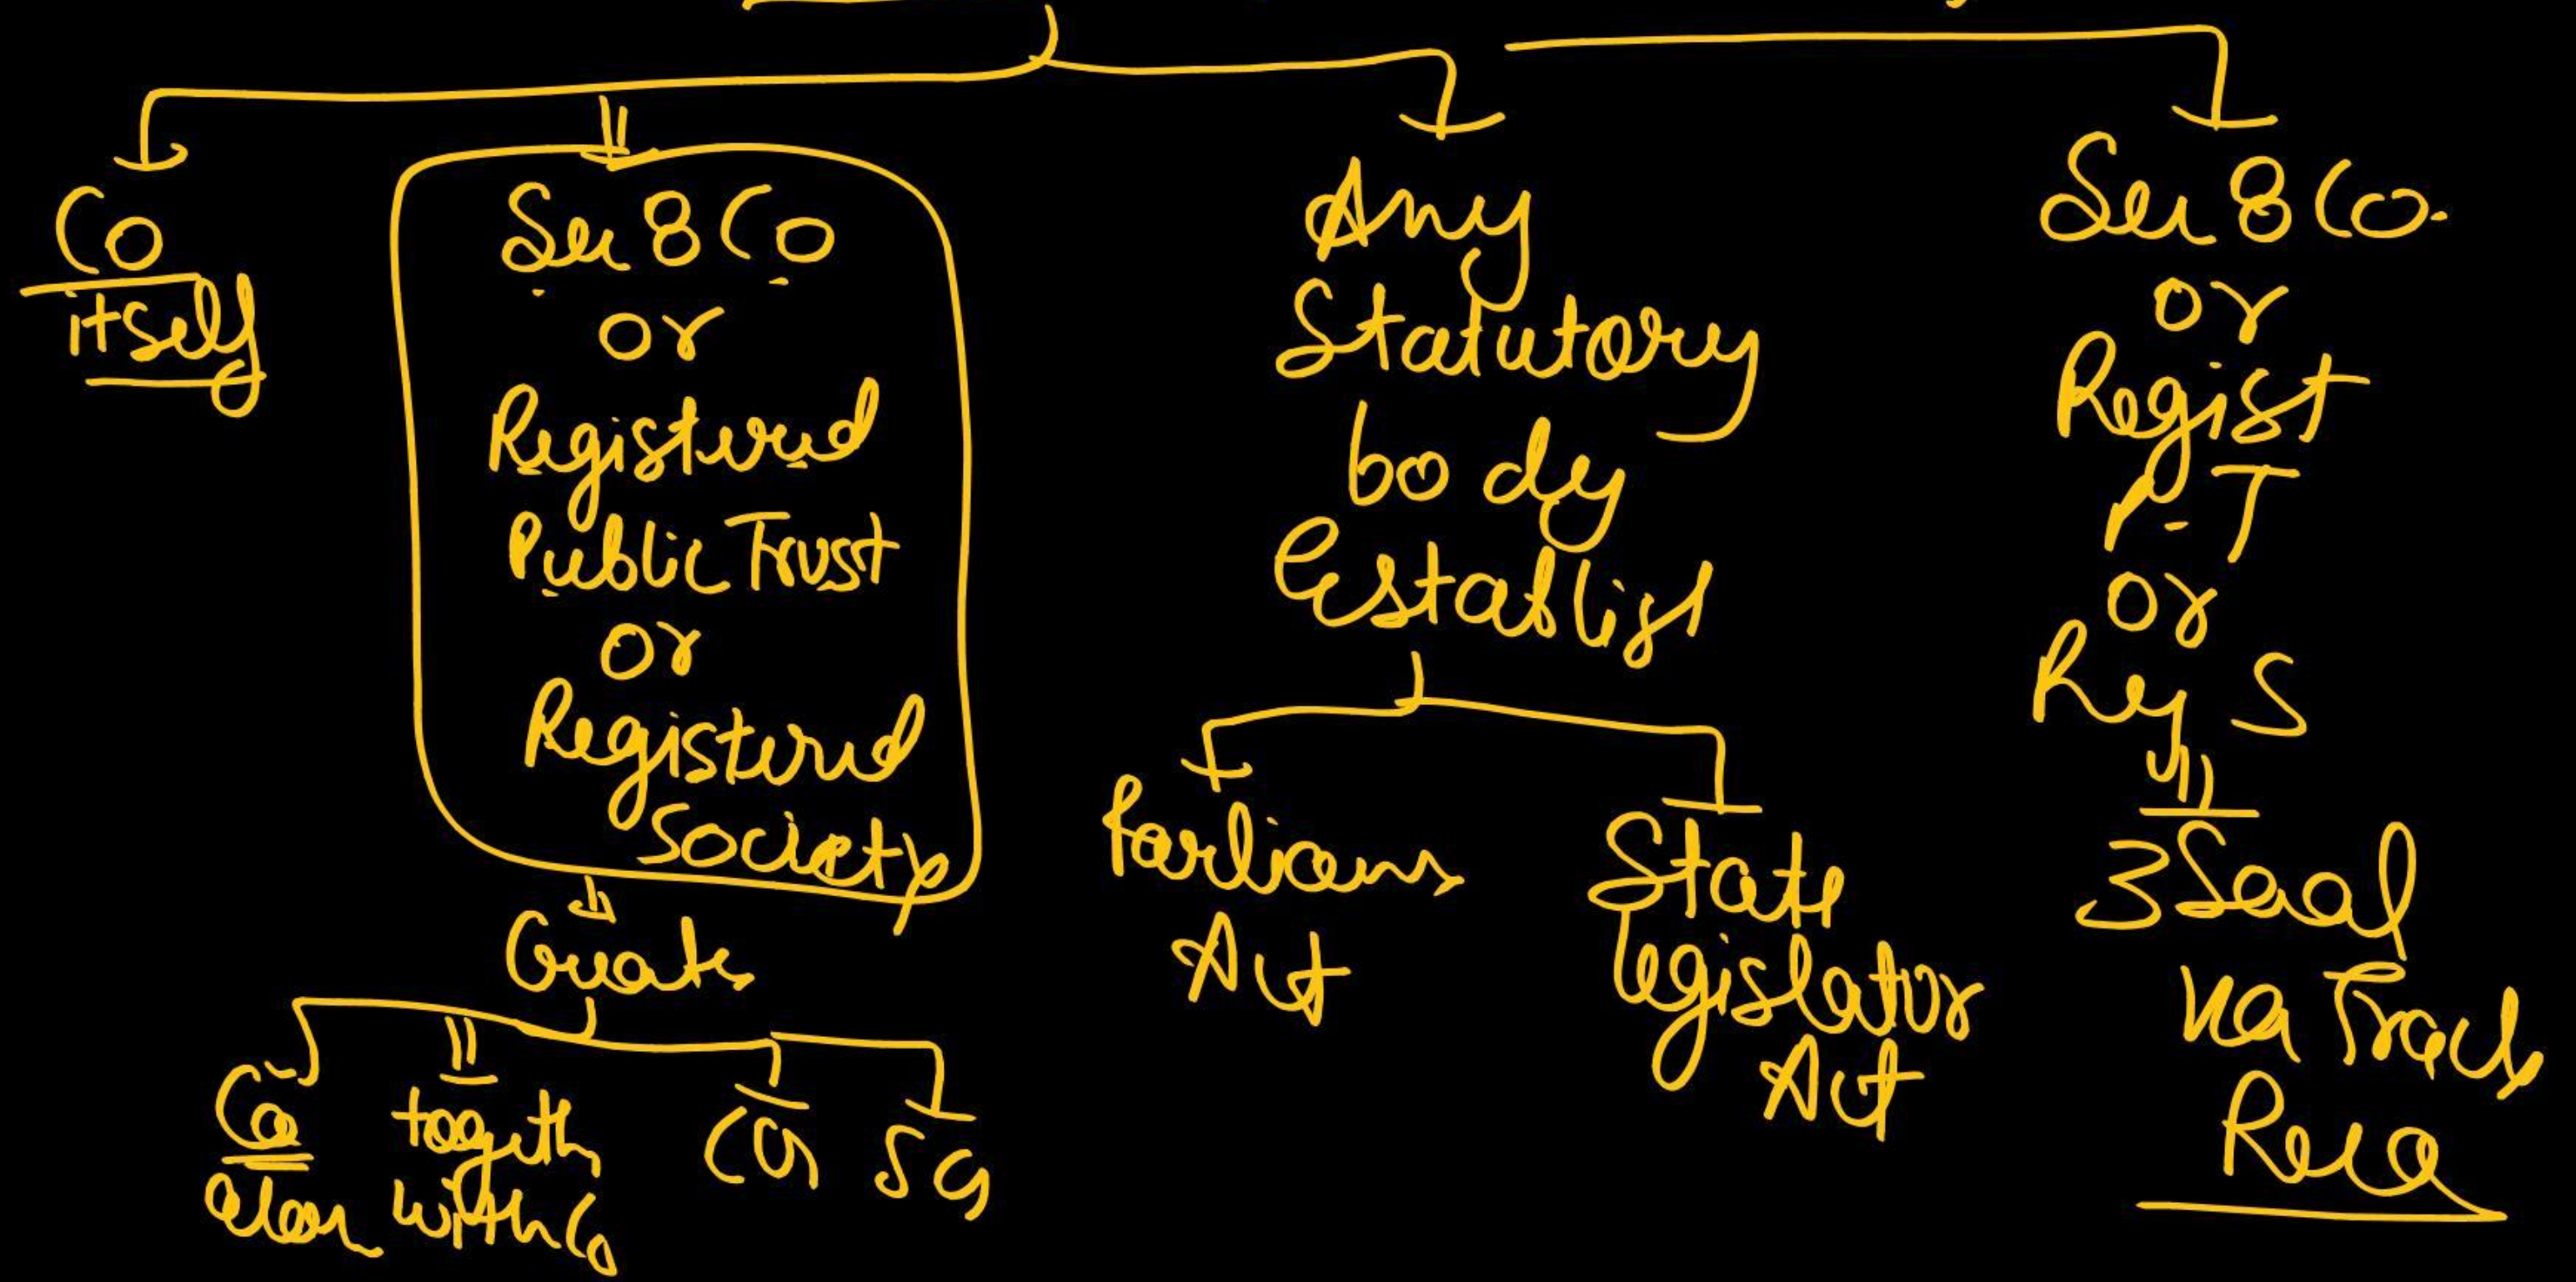 Co
itself
Sec 8 Co
or
Registered
Public Trust
or
Registered
Society
Create
Co
alon
togeth
with Co
CG
SG
Any
Statutory
body
Establish
Parliam
Act
State
Legislator
Act
Sec 8 Co.
or
Regist
P.T
or
Reg S
3 Saal
ka Track
Reco